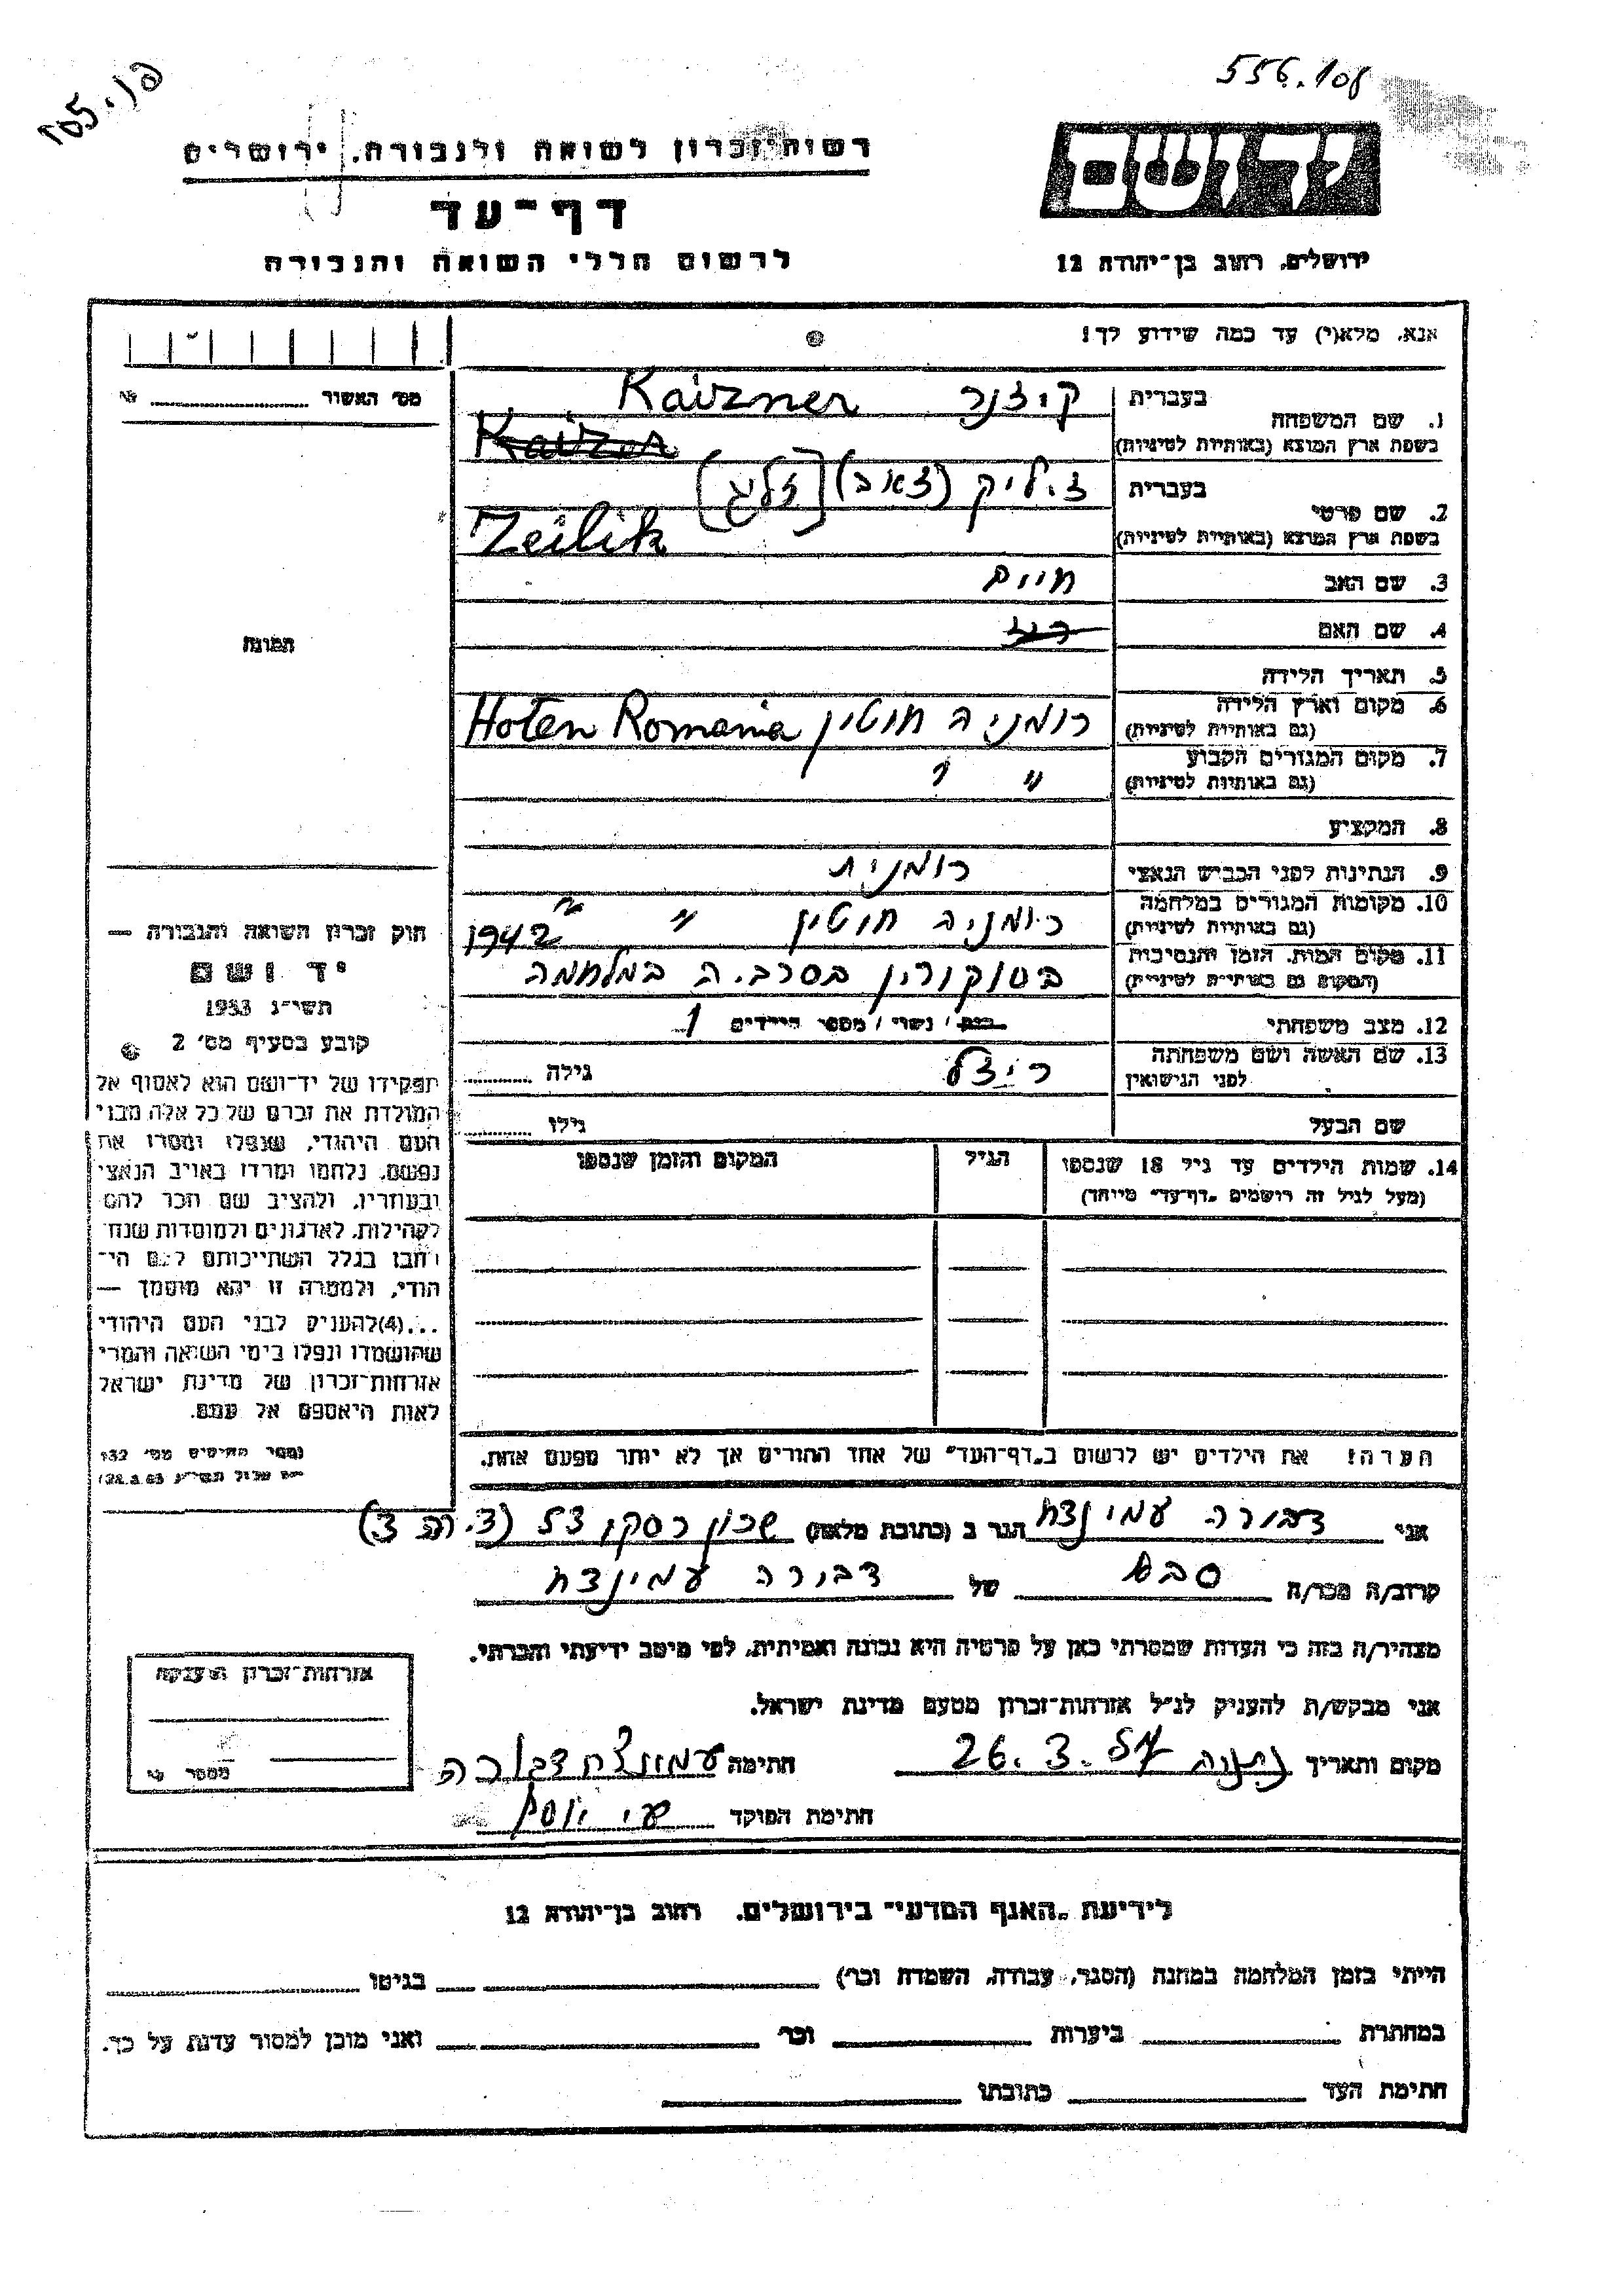 556.108
רשות־זכרון לשואה ולגבורה, ירושלים
דף־עד
לרשום חללי השואה והגבורה
יד ושם
ירושלים, רחוב בן־יהודה 12
אנא, מלא(י) עד כמה שידוע לך!
מס' האשור
1. שם המשפחה בעברית קיזנר Kaizner
בשפת ארץ המוצא (באותיות לטיניות)
2. שם פרטי בעברית זיליק (זאב) [זליג]
בשפת ארץ המוצא (באותיות לטיניות) Zeilik
3. שם האב חיים
4. שם האם
5. תאריך הלידה
6. מקום וארץ הלידה רומניה חוטין Hoten Romania
(גם באותיות לטיניות)
7. מקום המגורים הקבוע " "
(גם באותיות לטיניות)
8. המקציע
9. הנתינות לפני הכבוש הנאצי רומנית
10. מקומות המגורים במלחמה רומניה חוטין "
(גם באותיות לטיניות)
11. מקום המות, הזמן והנסיבות 1942
(המקום גם באותיות לטיניות) בסרביה במלחמה
12. מצב משפחתי רווק / נשוי / מספר הילדים 1
13. שם האשה ושם משפחתה ריזל גילה
לפני הנישואין
שם הבעל גילו
14. שמות הילדים עד גיל 18 שנספו הגיל המקום והזמן שנספו
(מעל לגיל זה רושמים „דף־עד" מיוחד)
הערה! את הילדים יש לרשום ב„דף־העד" של אחד ההורים אך לא יותר מפעם אחת.
תמונה
חוק זכרון השואה והגבורה —
יד ושם
תשי״ג 1953
קובע בסעיף מס' 2
תפקידו של יד־ושם הוא לאסוף אל
המולדת את זכרם של כל אלה מבני
העם היהודי, שנפלו ומסרו את
נפשם, נלחמו ומרדו באויב הנאצי
ובעוזריו, ולהציב שם וזכר להם
לקהילות, לארגונים ולמוסדות שנח־
רבו בגלל השתייכותם לעם הי־
הודי, ולמטרה זו יהא מוסמך —
...(4)להעניק לבני העם היהודי
שהושמדו ונפלו בימי השואה והמרי
אזרחות־זכרון של מדינת ישראל
לאות היאספם אל עמם.
אני דבורה עמינצח הגר ב (כתובת מלאה) שכון רסקו
קרוב/ה מכר/ה סבא של דבורה עמינצח
מצהיר/ה בזה כי העדות שמסרתי כאן על פרטיה היא נכונה ואמיתית, לפי מיטב ידיעתי והכרתי.
אני מבקש/ת להעניק לנ״ל אזרחות־זכרון מטעם מדינת ישראל.
מקום ותאריך נתניה 26.3.57 חתימה עמינצח דבורה
חתימת הפוקד
אזרחות־זכרון הוענקה
מספר
לידיעת „האגף המדעי" בירושלים, רחוב בן־יהודה 12
הייתי בזמן המלחמה במחנה (הסגר, עבודה, השמדה וכו') בגיטו
במחתרת ביערות וכו' ואני מוכן למסור עדות על כך.
חתימת העד כתובתו